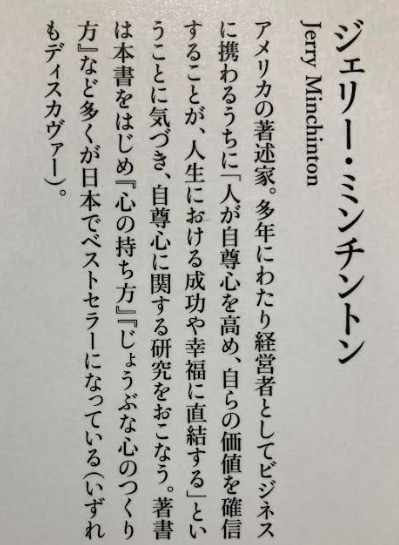 ジェリー・ミンチントン
Jerry Minchinton
アメリカの著述家。多年にわたり経営者としてビジネス
に携わるうちに「人が自尊心を高め、自らの価値を確信
することが、人生における成功や幸福に直結する」とい
うことに気づき、自尊心に関する研究をおこなう。著書
は本書をはじめ『心の持ち方』『じょうぶな心のつくり
方』など多くが日本でベストセラーになっている(いずれ
もディスカヴァー)。